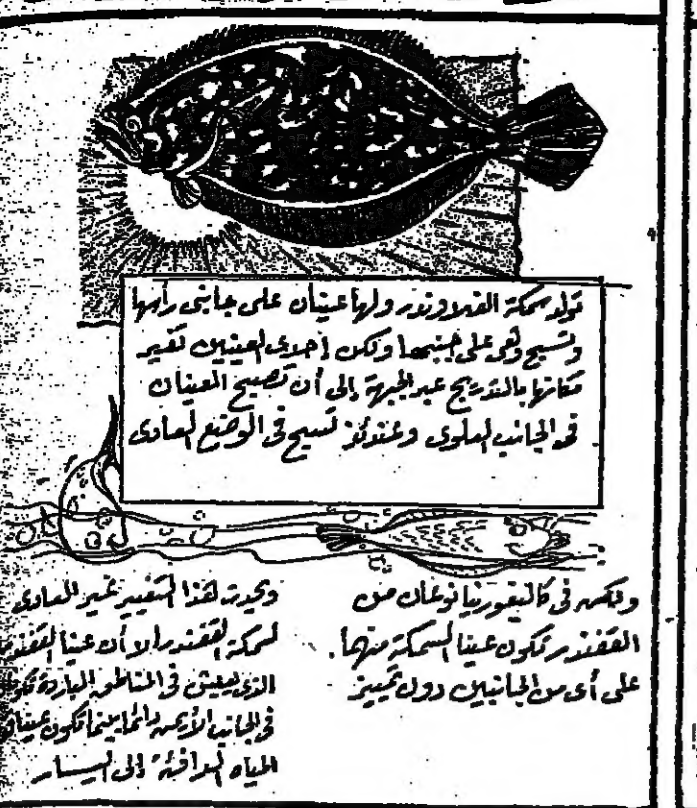 تولد سمكة الفلاوندر ولها عينان على جانبى رأسها
وتسبح وهى على جنبها ولكن إحدى العينين تغير
مكانها بالتدريج عبر الجبهة إلى أن تصبح العينان
فى الجانب العلوى وعندئذ تسبح فى الوضع العادى
ويحدث هذا التغيير غير العادى
لسمكة القفندر إلا أن عينا القفندر
الذى يعيش فى المناطق الباردة تكون
فى الجانب الأيمن دائما بينما تكون عينا
المياه الدافئة إلى اليسار
ولكن فى كاليفورنيا نوعان من
القفندر تكون عينا السمكة منهما
على أى من الجانبين دون تمييز